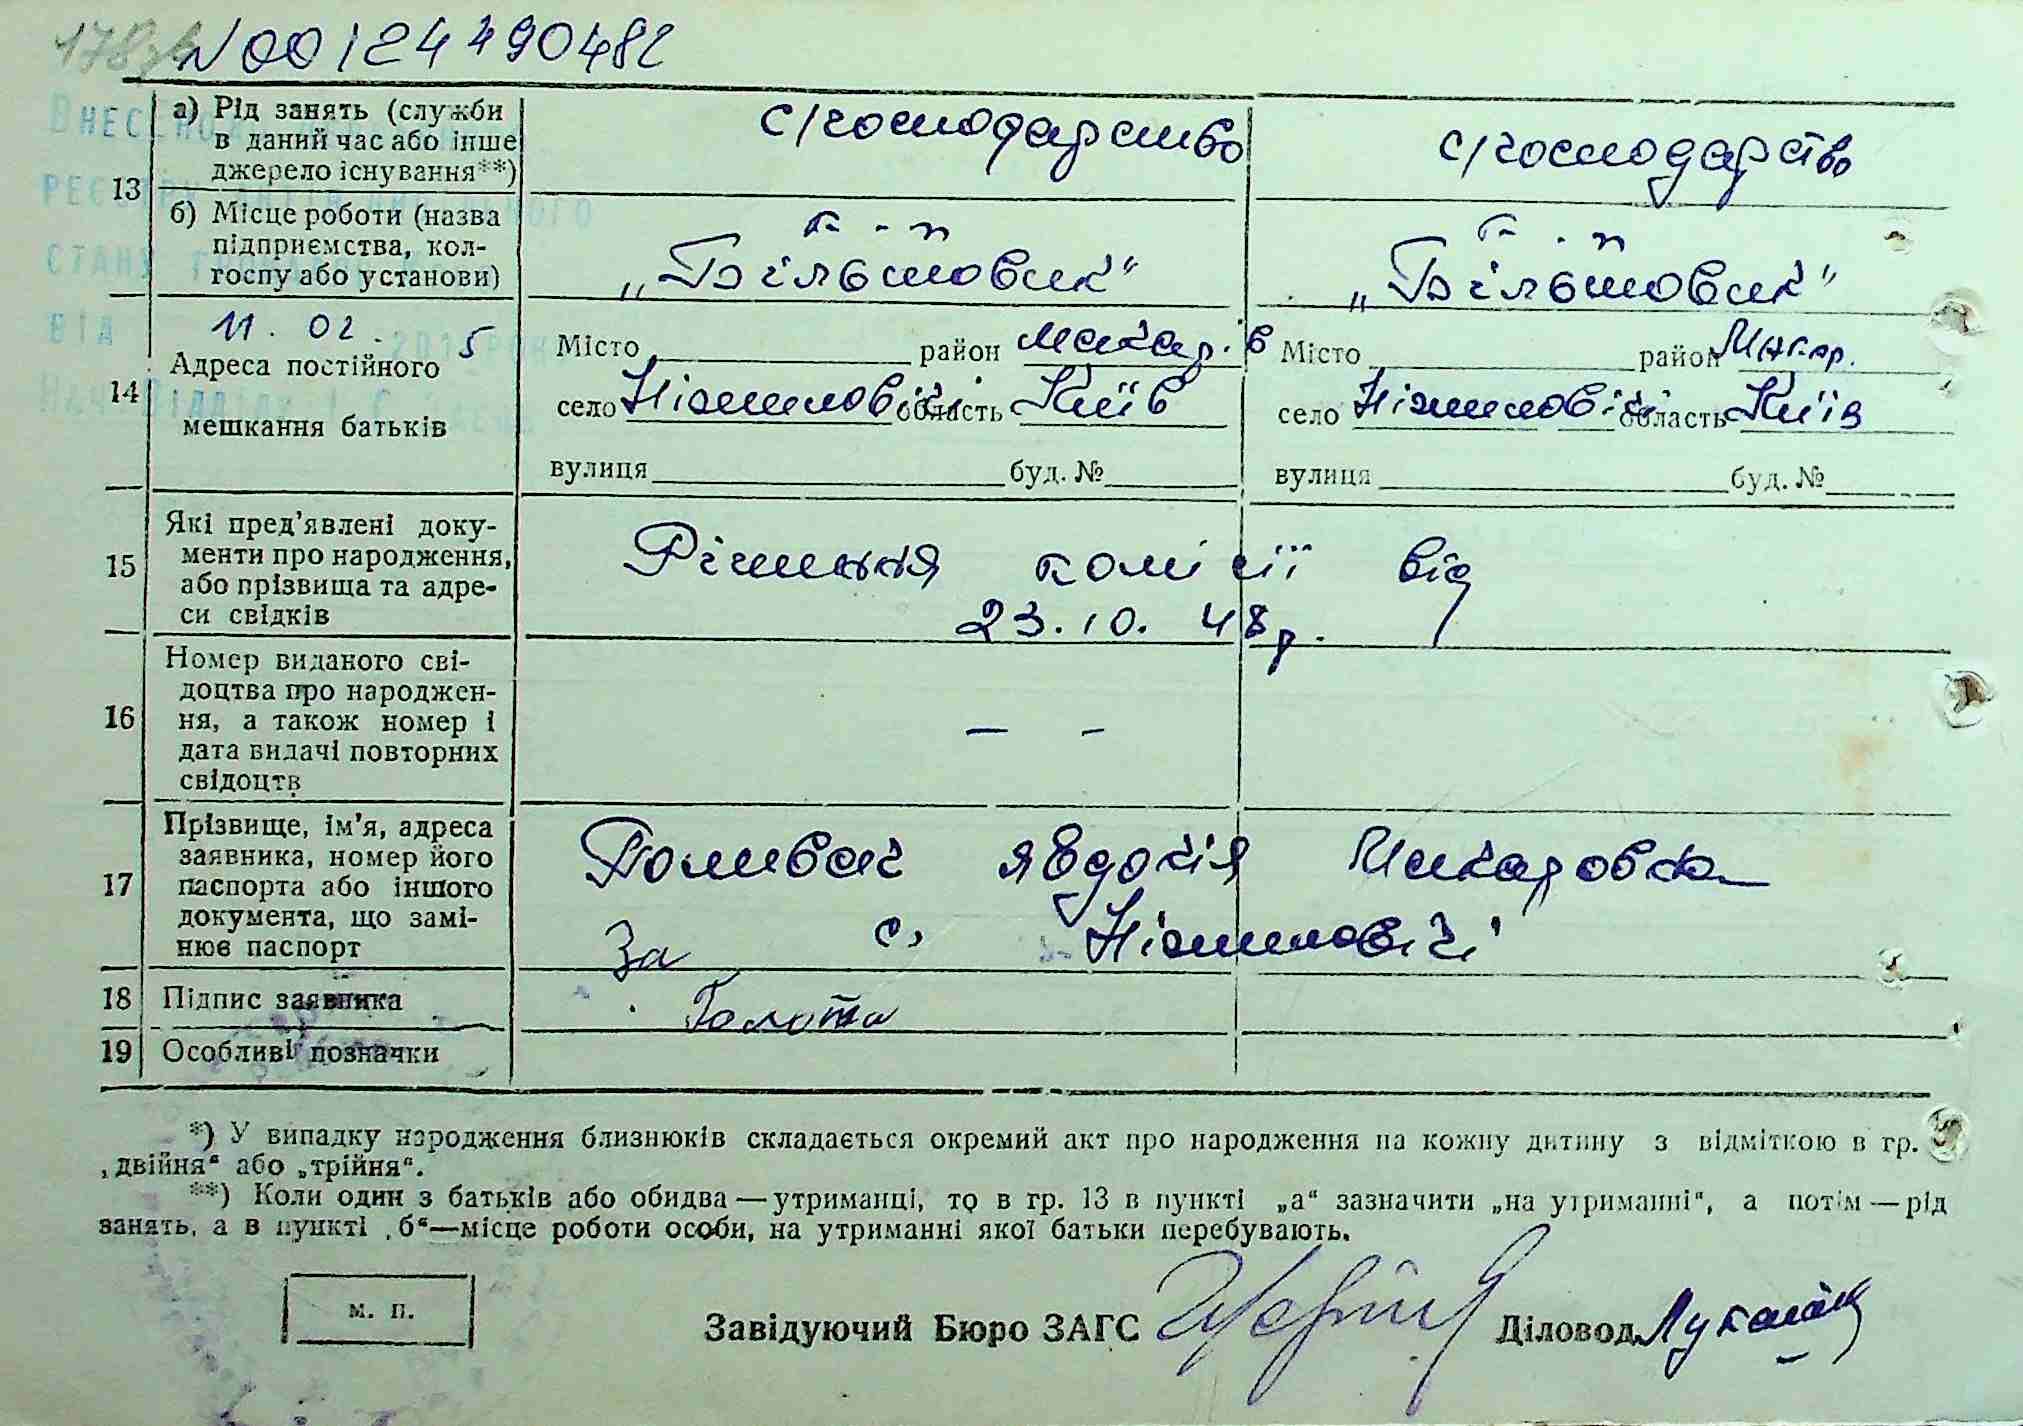 178зв N 00124490482
а) Рід занять (служби
в даний час або інше
джерело існування**)
с/господарство
с/господарство
13
б) Місце роботи (назва
підприємства, кол-
госпу або установи)
к-п
„Більшовик“
к-п
„Більшовик“
Внесено
стану
від 11. 02. 2015 року
14
Адреса постійного
мешкання батьків
Місто район Макар. Місто район Макар.
село Ніжиловічі область Київ село Ніжиловічі область Київ
вулиця буд. № вулиця буд. №
15
Які пред’явлені доку-
менти про народження,
або прізвища та адре-
си свідків
Рішення комісії від
23.10. 48 р.
16
Номер виданого сві-
доцтва про народжен-
ня, а також номер і
дата видачі повторних
свідоцтв
— -
17
Прізвище, ім’я, адреса
заявника, номер його
паспорта або іншого
документа, що замі-
нює паспорт
Поливач Явдокія Макаровна
с. Ніжиловічі
18 Підпис заявника
За Голота
19 Особливі позначки
*) У випадку народження близнюків складається окремий акт про народження на кожну дитину з відміткою в гр.
„двійня“ або „трійня“.
**) Коли один з батьків або обидва — утриманці, то в гр. 13 в пункті „а“ зазначити „на утриманні“, а потім — рід
занять, а в пункті „б“—місце роботи особи, на утриманні якої батьки перебувають.
м. п.
Завідуючий Бюро ЗАГС Діловод